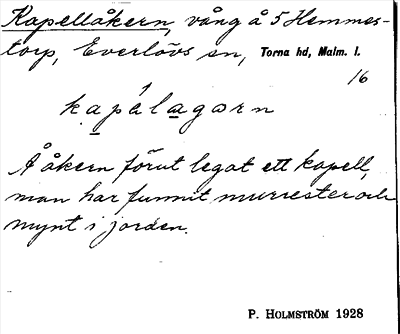 Kapellåkern, vång å 5 Hemmes-
torp, Everlövs sn, Torna hd, Malm. l.
16
kapälagørn
Å åkern förut legat ett kapell,
man har funnit murrester och
mynt i jorden.
P. HOLMSTRÖM 1928